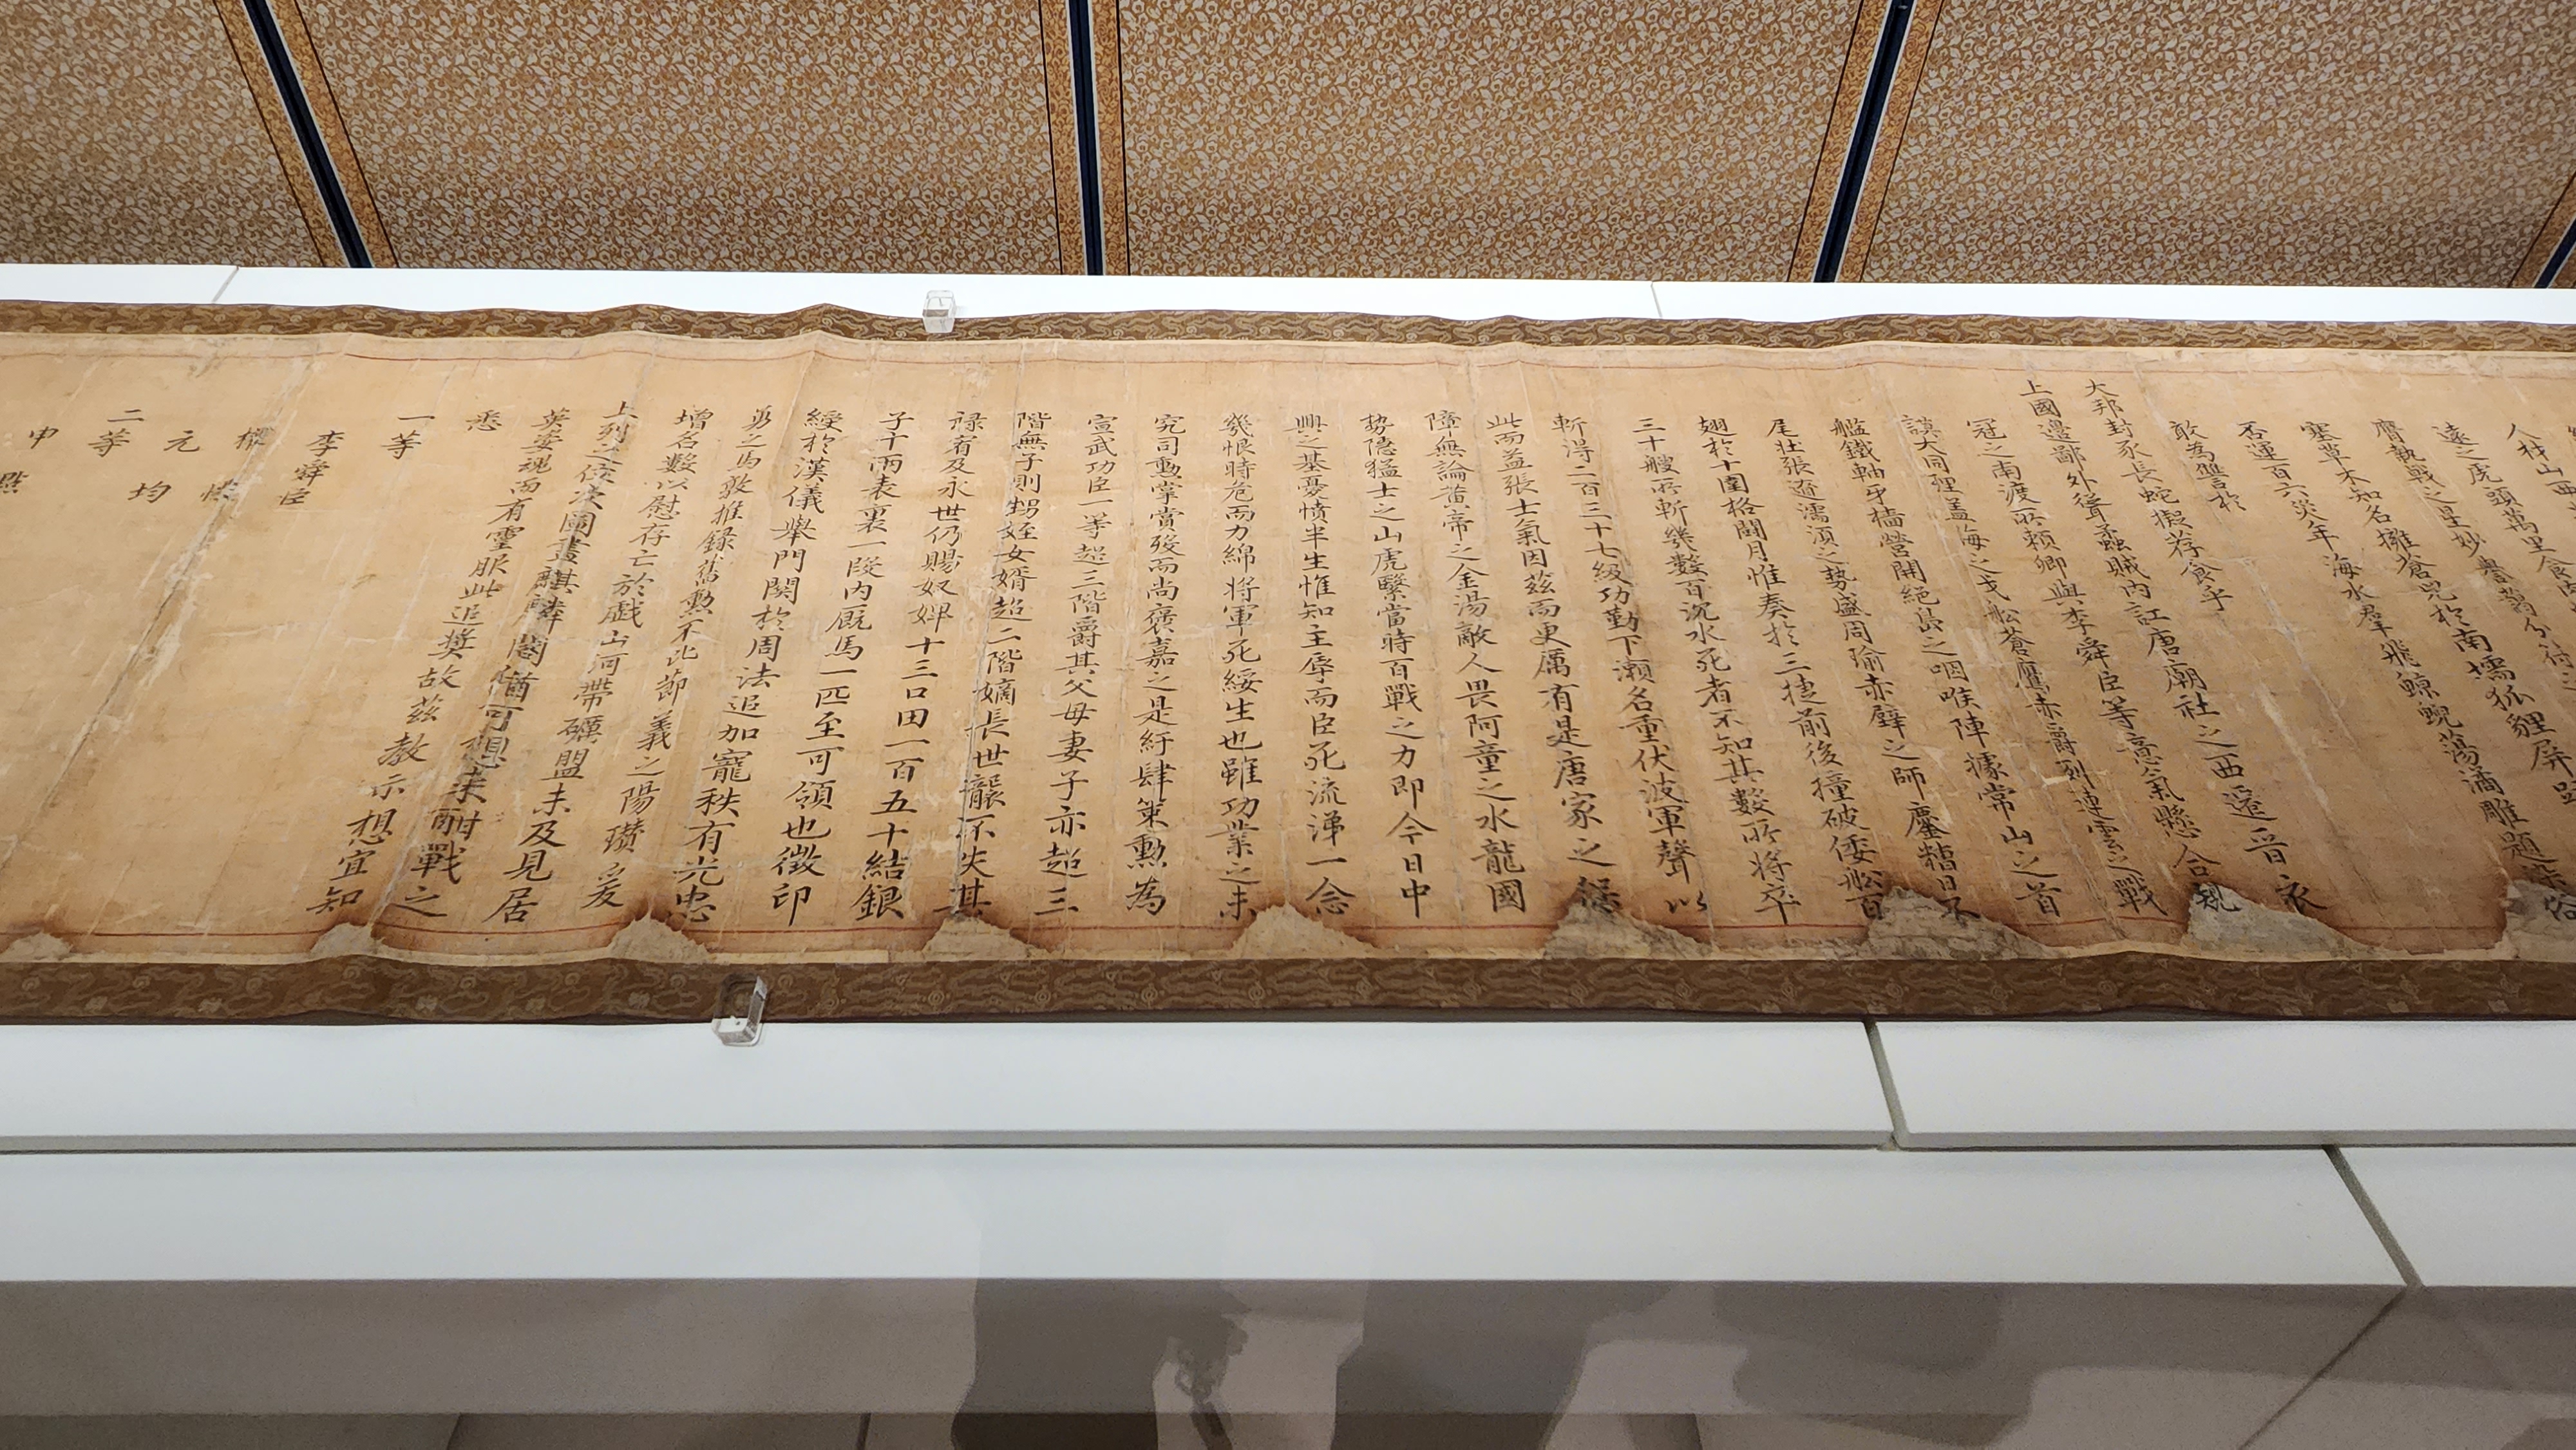 人材山西
遠之虎頭萬里食肉
膺執戟之星妙譽
塞草木知名擁蒼兕於南壖狐狸屏
否運百六災年海水群飛鯨鯢蕩潏雕題
敢為讐於
大邦封豕長蛇擬荐食乎
上國邊鄙外聳蟊賊內訌唐廟社之西遷晉衣
冠之南渡所賴卿與李舜臣等意氣懸合
謨大同裡盖海之戈船蒼鷹赤爵列連雲之戰
艦鐵軸牙檣營開絕島之咽喉陣據常山之首
尾壯張遼濡須之勢盛周瑜赤壁之師鏖糟
翅於十圍格鬪月惟奏於三捷前後撞破倭船百
三十艘所斬幾數百沉水死者不知其數所將卒
斬得二百三十七級功勤下瀨名重伏波軍聲以
此而益張士氣因玆而更厲有是唐家之
障無論黃帝之金湯敵人畏阿童之水龍國
勢隱猛士之山虎緊當時百戰之力即今日中
興之基憂憤半生惟知主辱而臣死流涕一念
幾恨時危而力綿將軍死綏生也雖功業之未
究司勳掌賞歿而尚褒嘉之是紆肆策勳為
宣武功臣一等超三階爵其父母妻子亦超三
階無子則甥姪女婿超二階嫡長世襲不失其
祿宥及永世仍賜奴婢十三口田一百五十結銀
子十兩表裏一段內廐馬一匹至可領也徵印
綬於漢儀擧門閥於周法追加寵秩有光忠
勇之馬敦推錄舊勳不比節義之陽瓚爰
增名數以慰存亡於戲山河帶礪盟未及見居
上列之位次圖畫麒麟閣猶可想未酣戰之
英姿魂而有靈服此追奬故玆敎示想宜知
悉
一等
李舜臣
權慄
元均
二等
申點